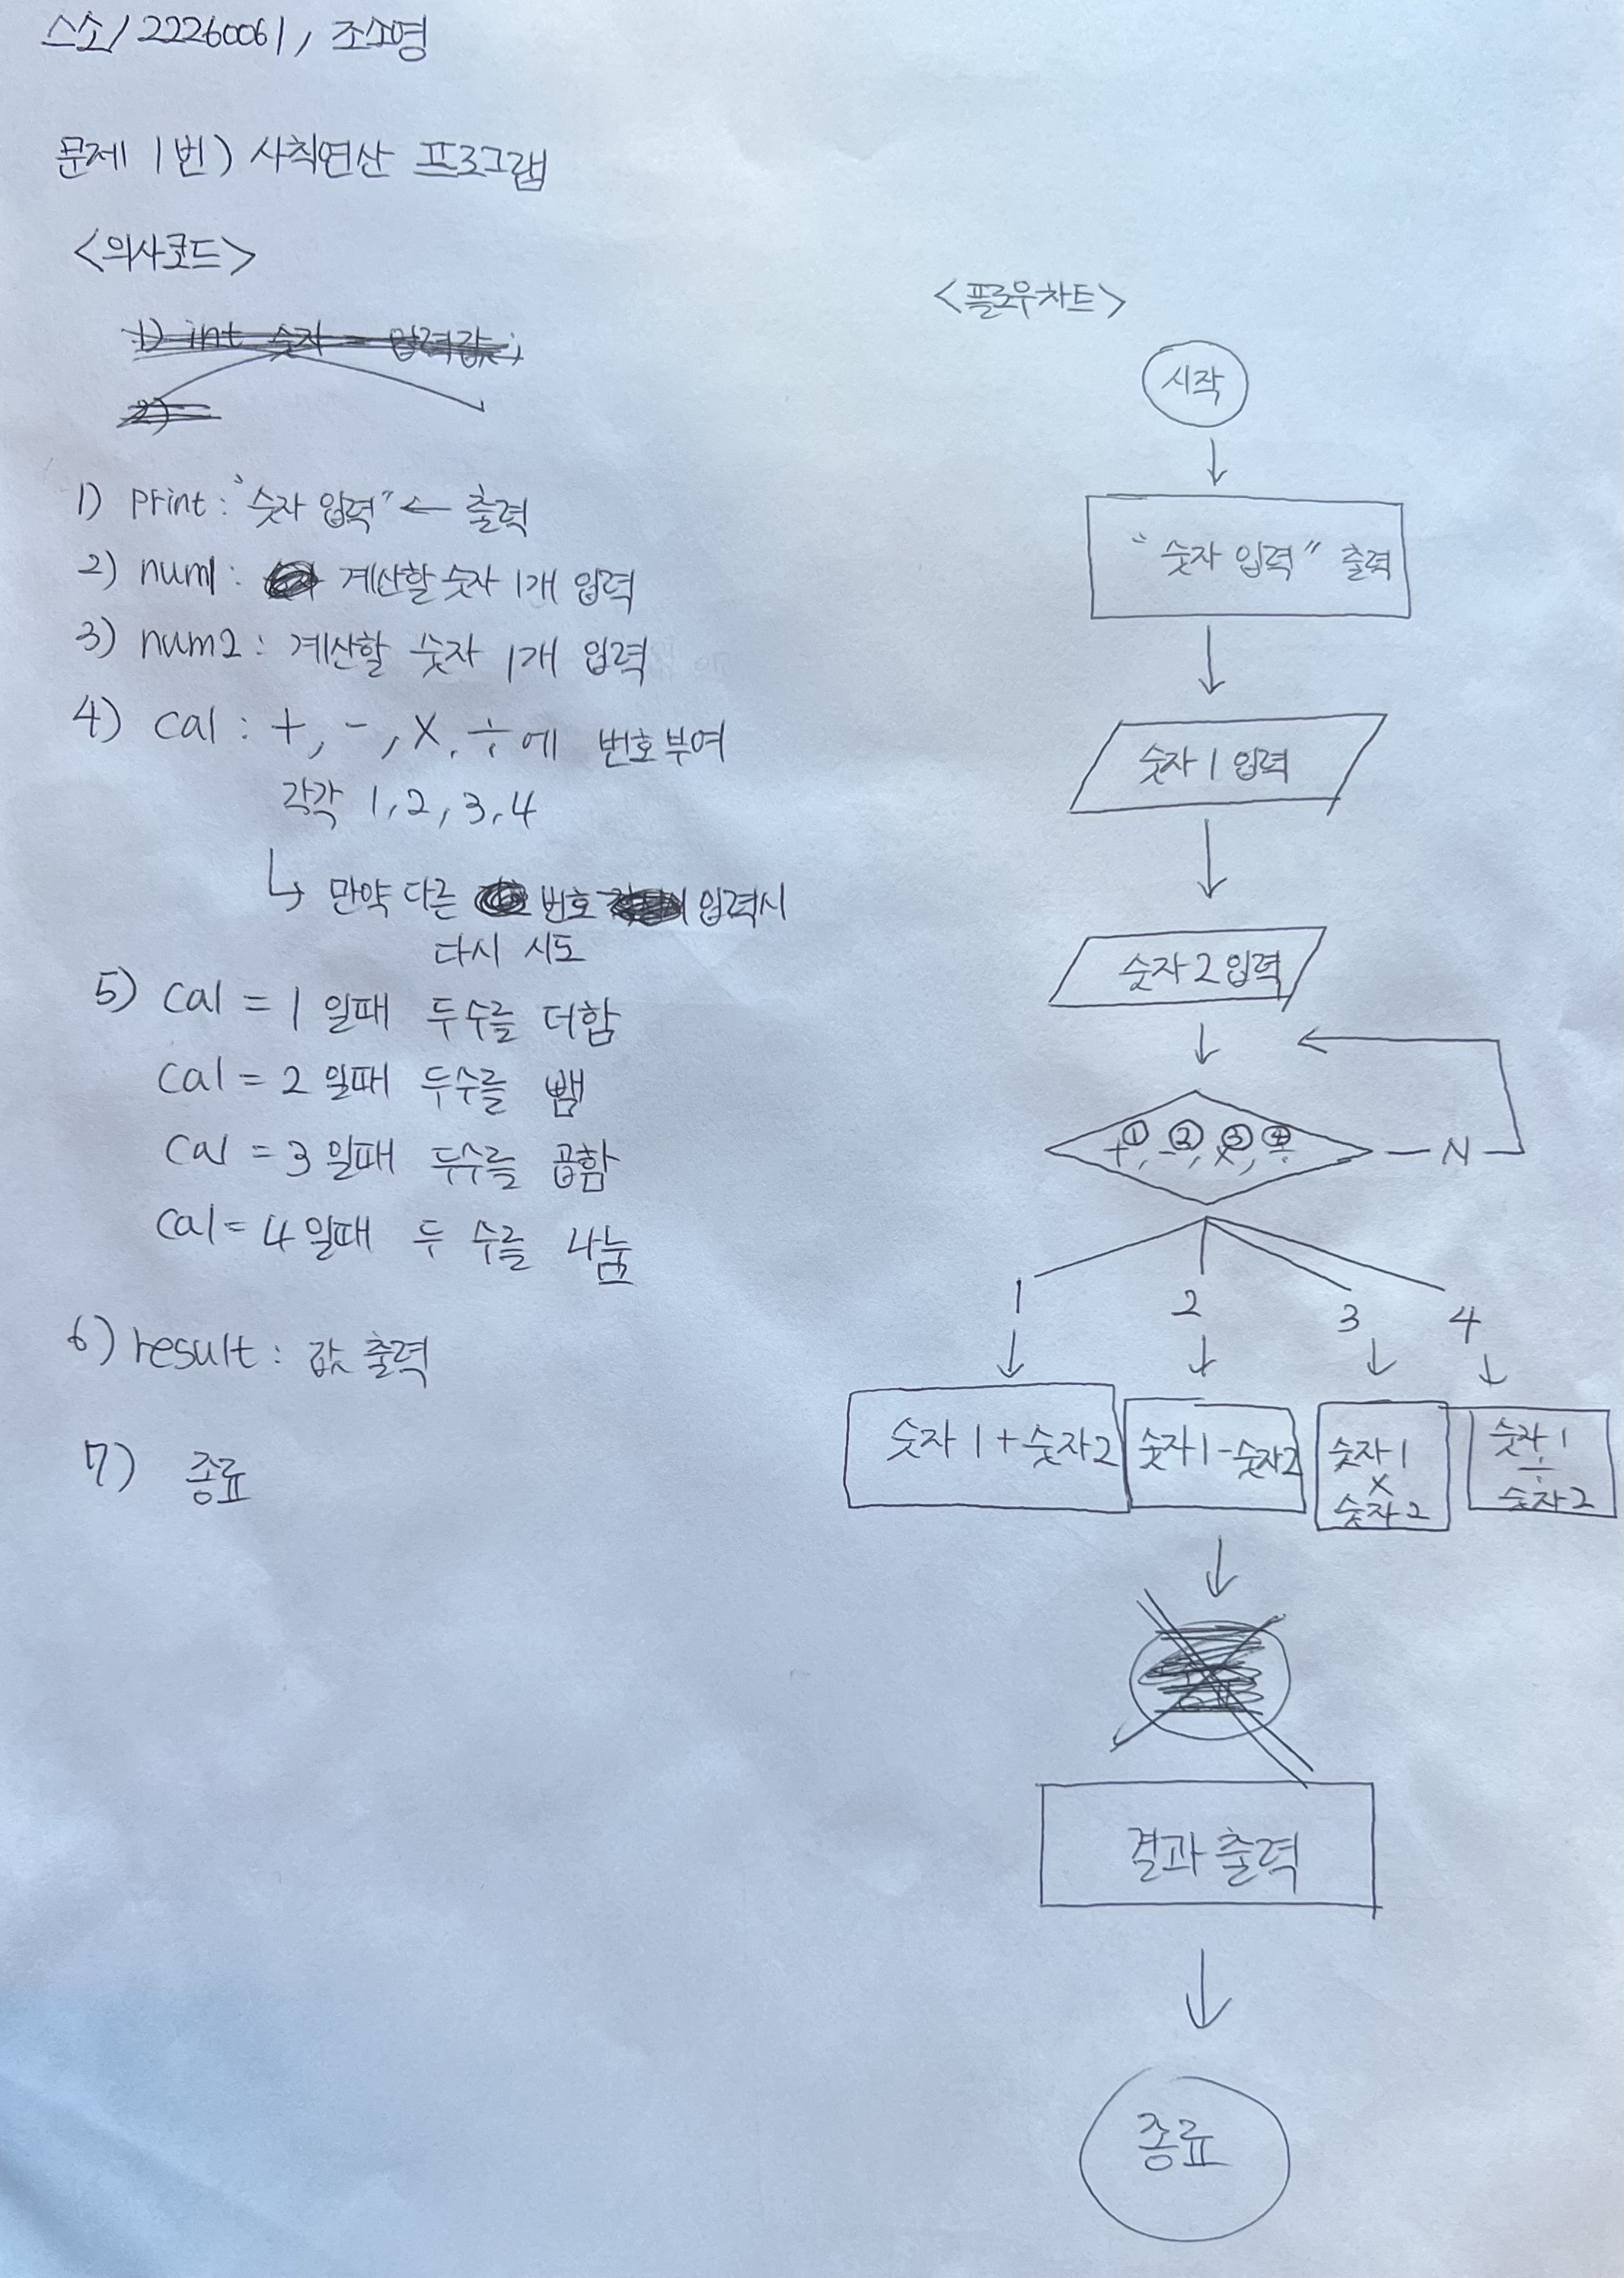 스소/22260061, 조소영
문제 1번) 사칙연산 프로그램
<의사코드>
1) int 숫자 = 입력값;
2)
1) print: "숫자 입력" ← 출력
2) num1: 계산할 숫자 1개 입력
3) num2: 계산할 숫자 1개 입력
4) cal: +, -, X, ÷에 번호부여
각각 1, 2, 3, 4
↳ 만약 다른 번호 입력시
다시 시도
5) cal = 1 일때 두수를 더함
cal = 2 일때 두수를 뺌
cal = 3 일때 두수를 곱함
cal = 4 일때 두 수를 나눔
6) result: 값 출력
7) 종료
<플로우차트>
시작
"숫자 입력" 출력
숫자 1 입력
숫자 2 입력
① ② ③ ④
+, -, x, ÷
N
1 2 3 4
숫자 1 + 숫자 2
숫자 1 - 숫자 2
숫자 1
x
숫자 2
숫자 1
÷
숫자 2
결과 출력
종료